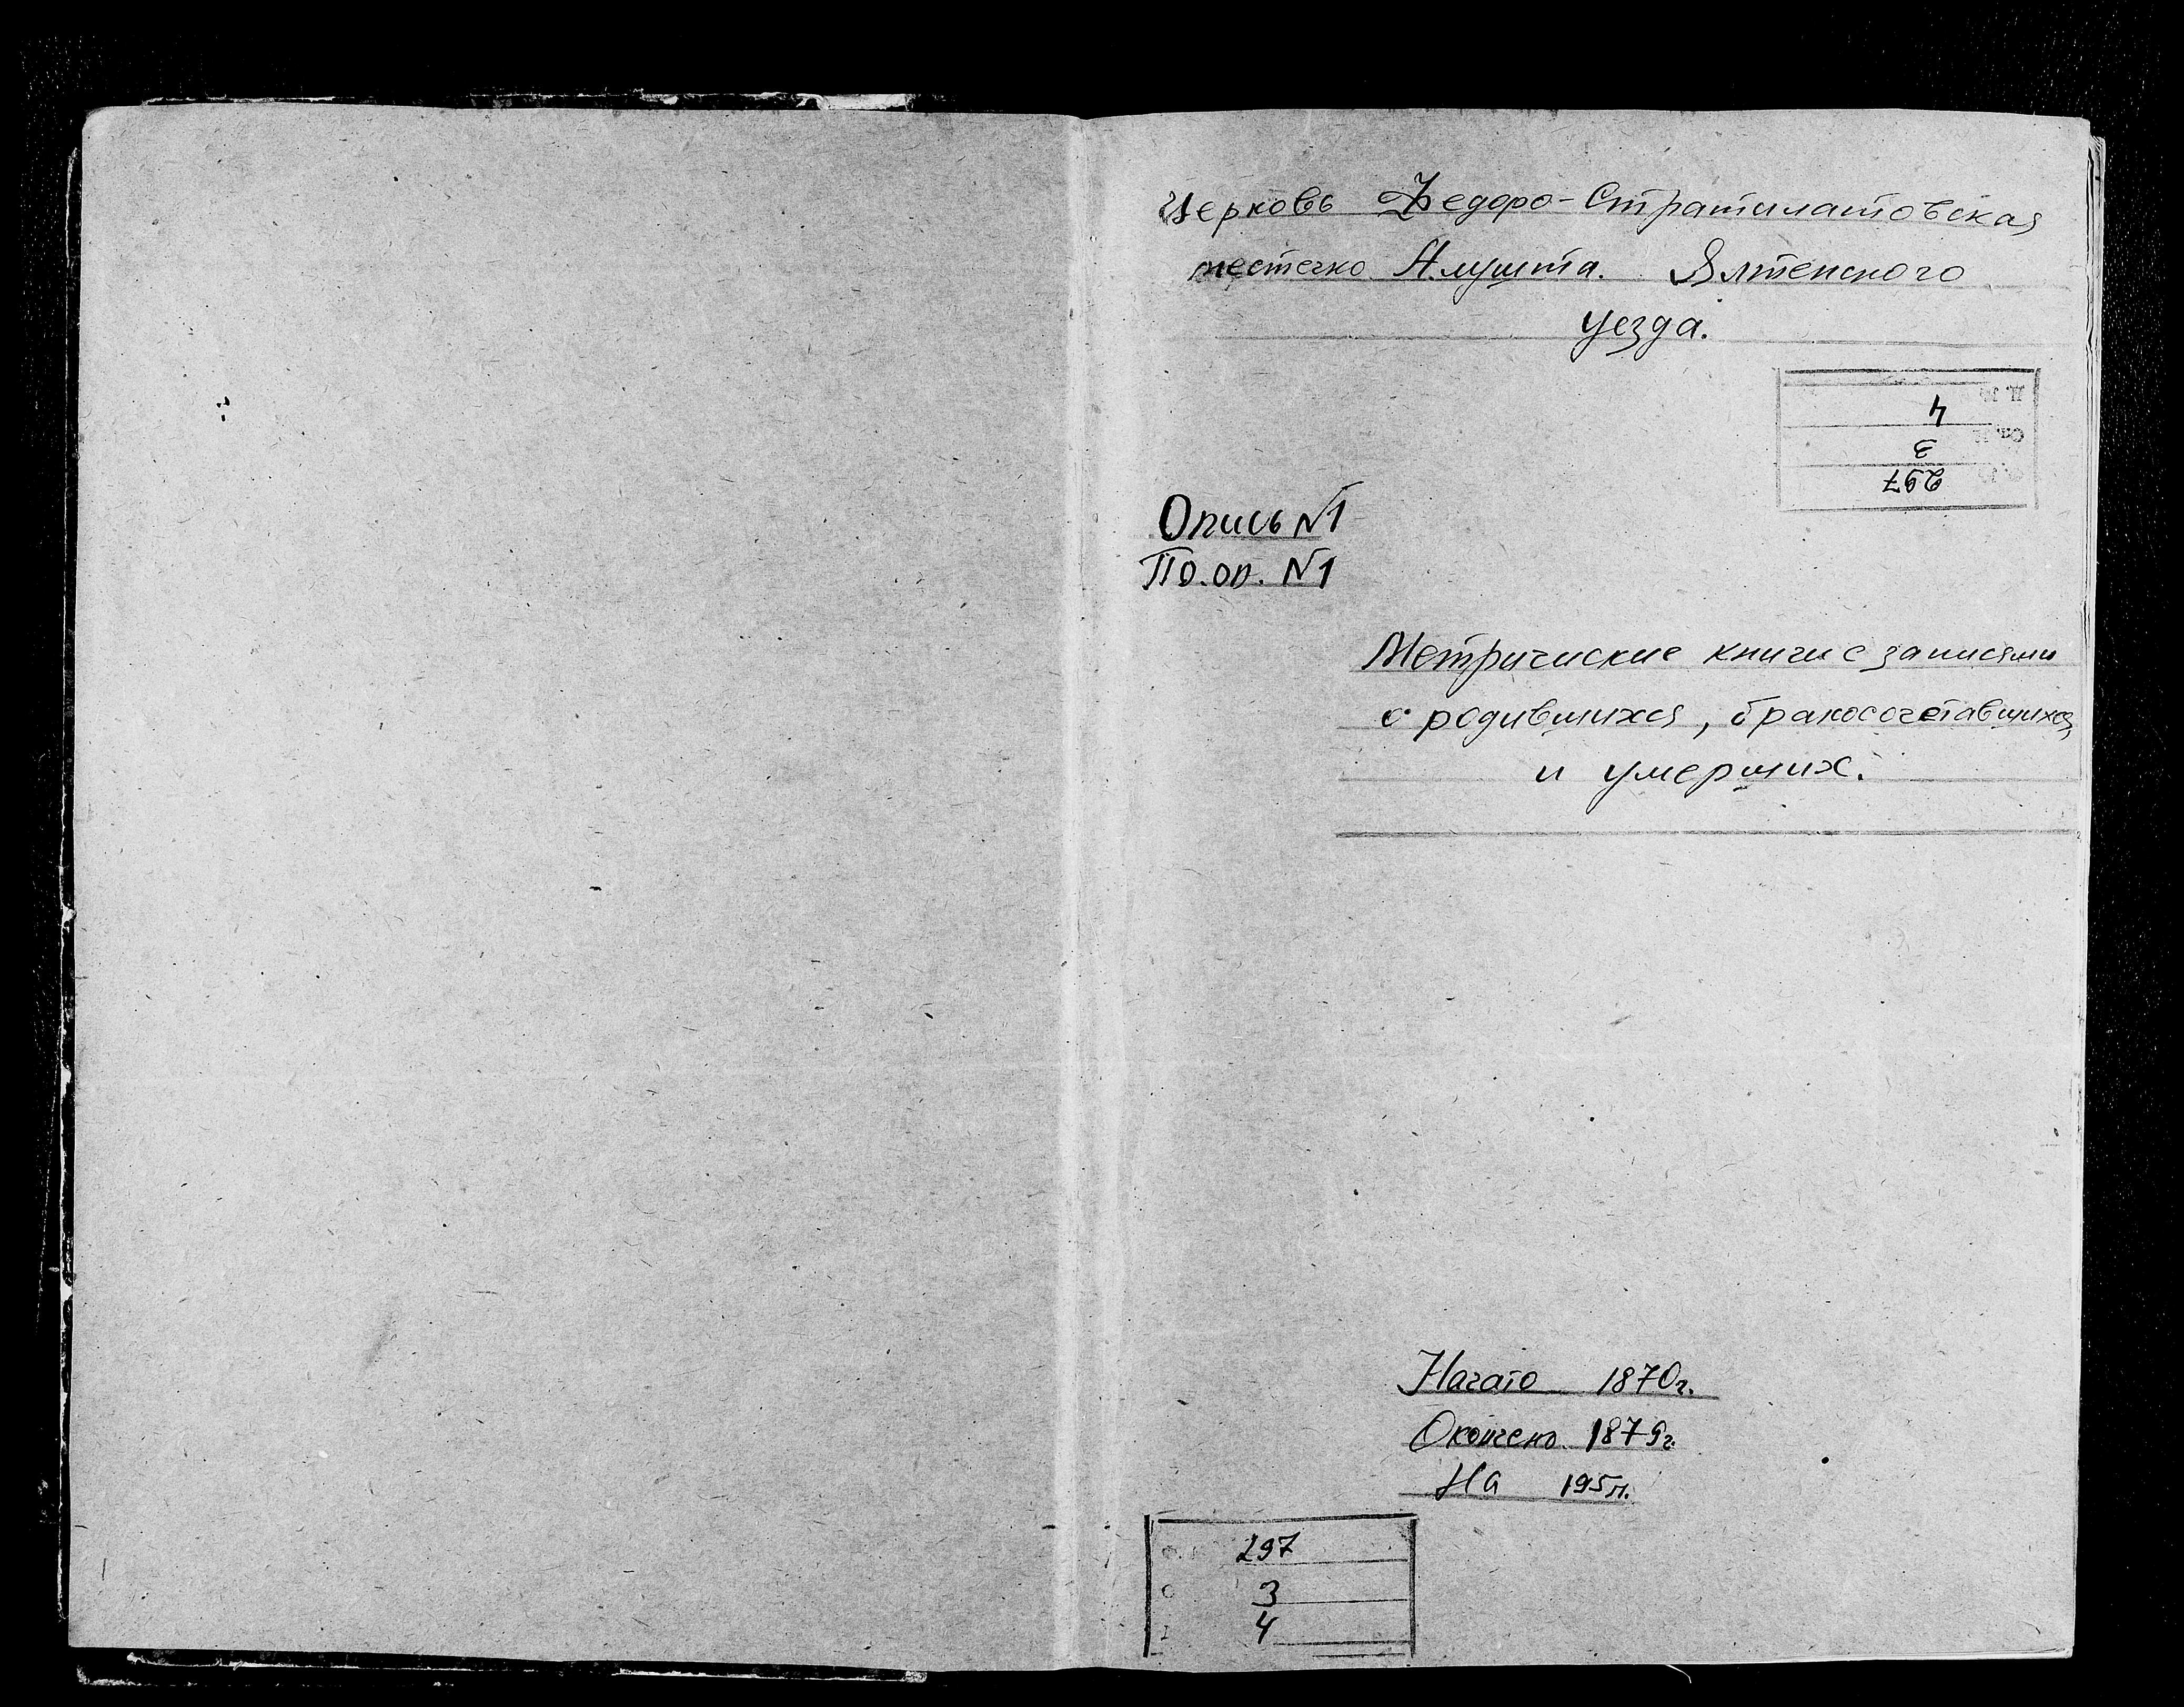 Церковь Федоро-Стратилатовская
местечко Алушта. Ялтенского
уезда.
Д. №
4
Оп. №
3
297
Опись №1
По.оп. №1
Метрические книги с записями
о родившихся, бракосочетавшихся
и умерших.
Начато 1870г.
Окончено 1879г.
На 195л.
297
3
4